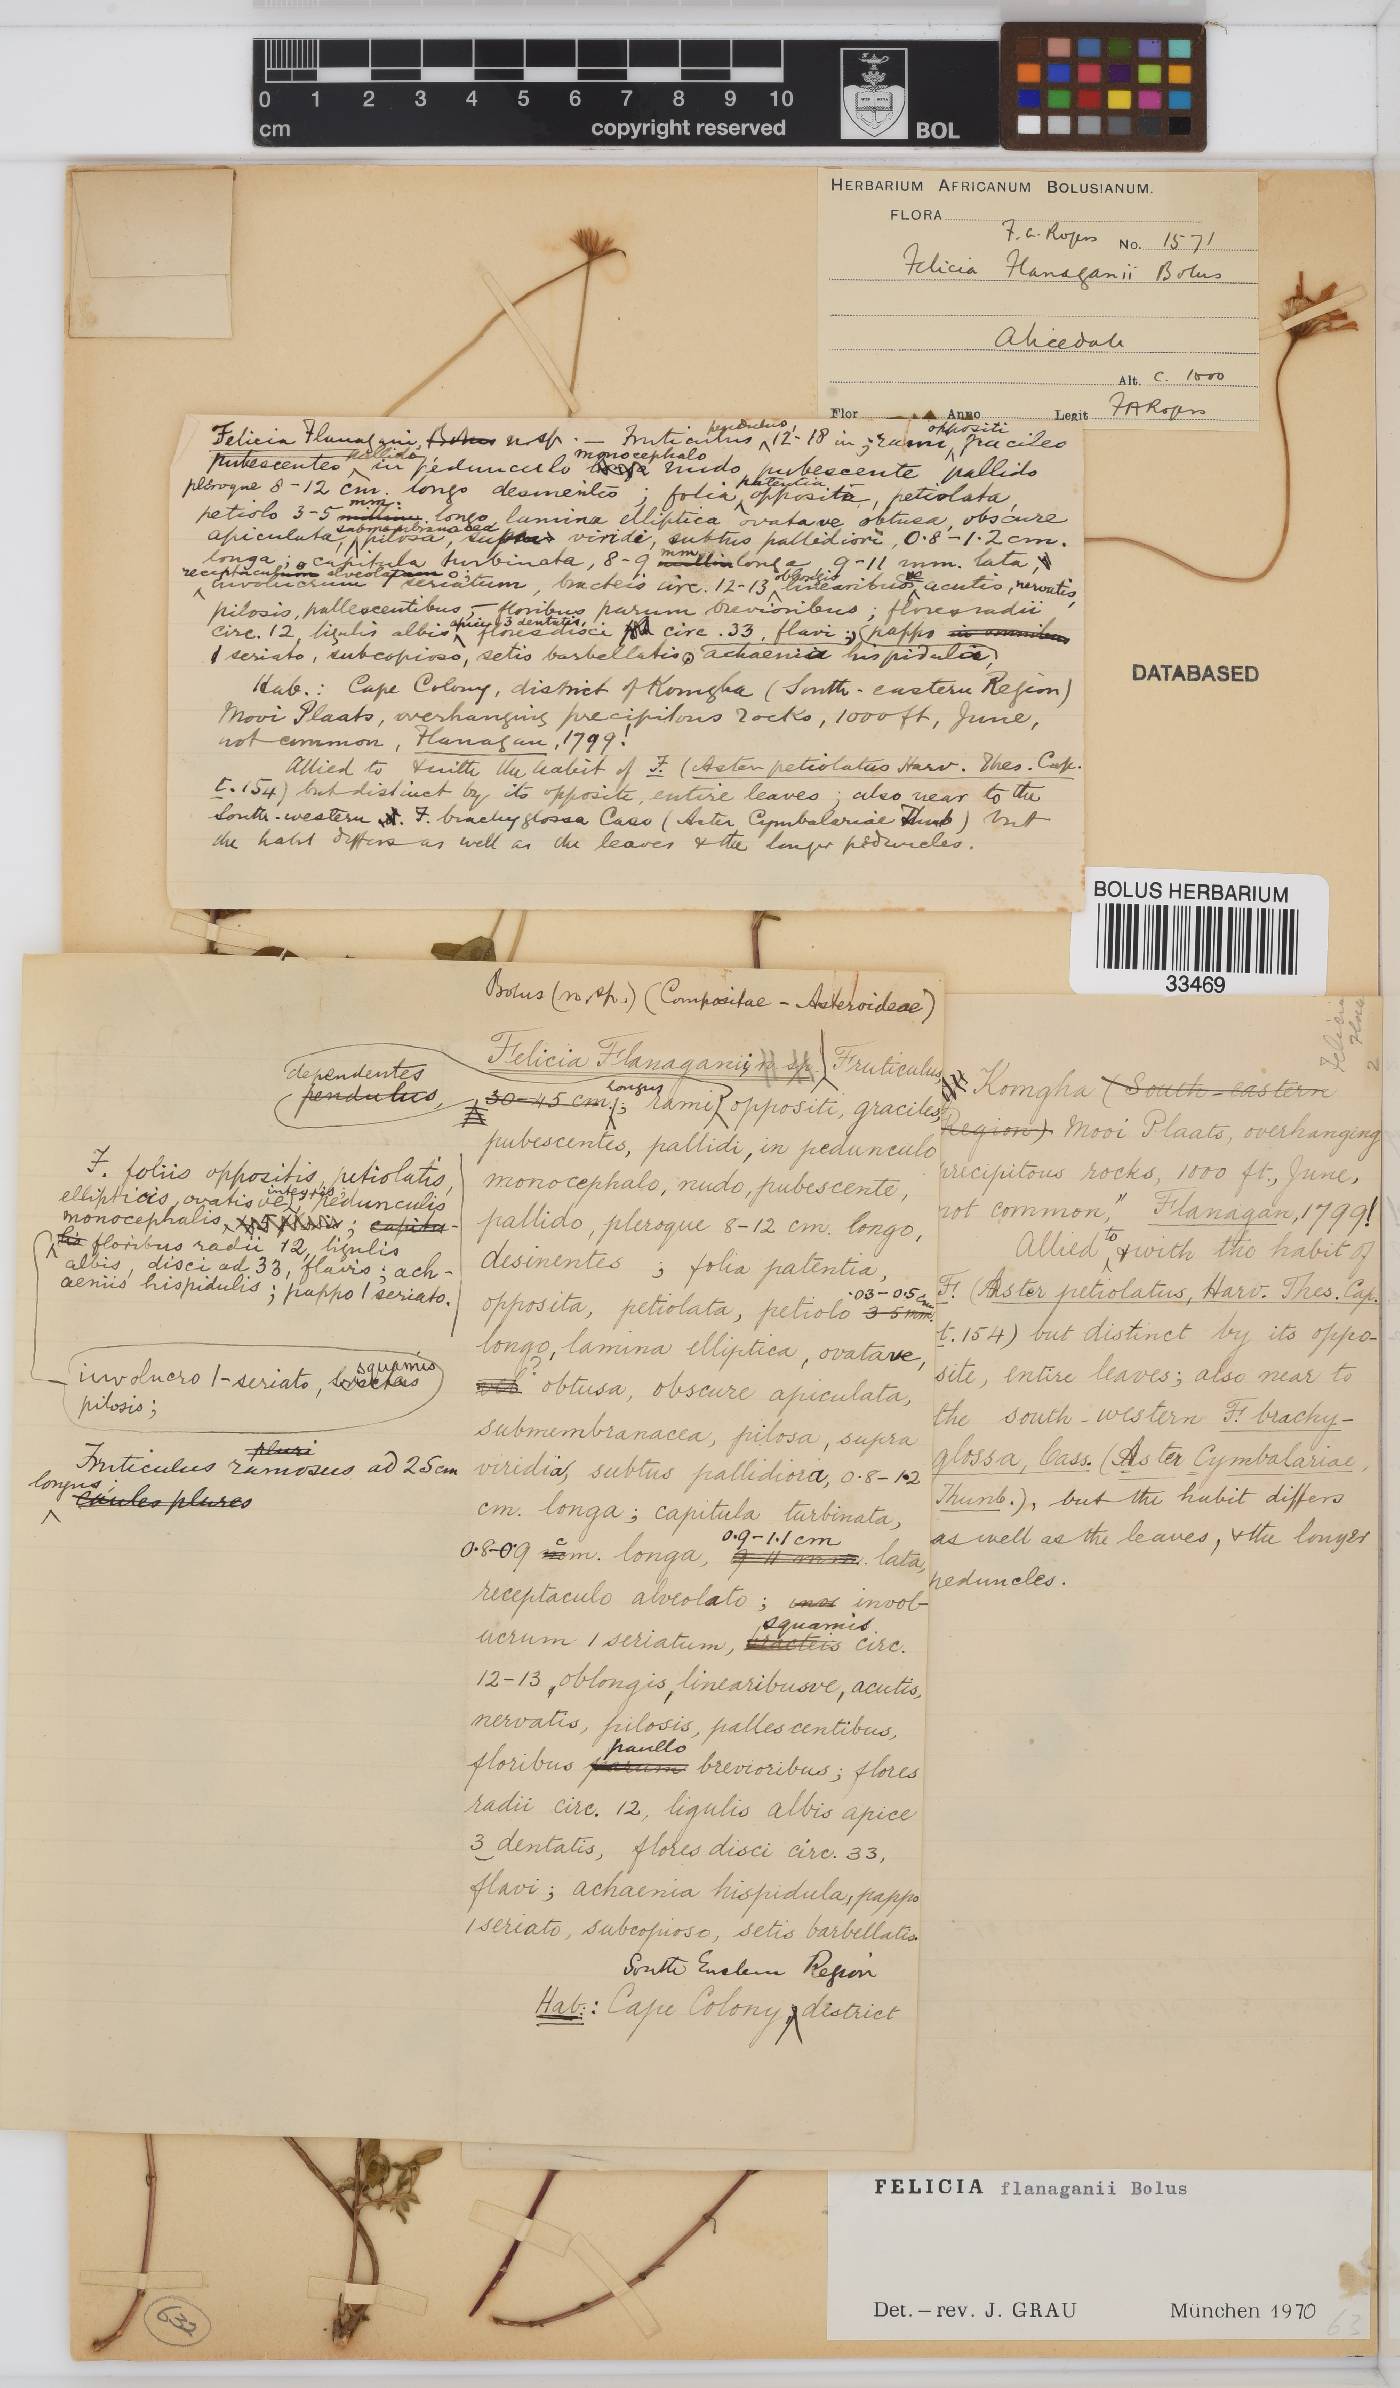 0 1 2 3 4 5 6 7 8 9 10
cm copyright reserved BOL
HERBARIUM AFRICANUM BOLUSIANUM.
FLORA
F. A. Rogers No. 1571
Felicia Flanaganii Bolus
Alicedale
Alt. c. 1000
Flor Anno Legit FA Rogers
DATABASED
BOLUS HERBARIUM
33469
pendulus, oppositi
Felicia Flanagani, Bolus n. sp. — Fruticulus 12-18 in; rami, graciles
pallidi monocephalo
pubescentes in pedunculo nudo pubescente pallido
patentia
pleroque 8-12 cm. longo desinentes; folia opposita, petiolata,
mm.
petiolo 3-5 longo lamina elliptica ovatave obtusa, obscure
submembranacea
apiculata, pilosa, supra viridi, subtus pallidiori, 0.8-1.2 cm.
mm
longa; capitula turbinata, 8-9 longa 9-11 mm. lata,
receptaculum alveolatum oblongis
involucrum 1 seriatum, bracteis circ. 12-13 linearibusve acutis, nervatis,
pilosis, pallescentibus, floribus parum brevioribus; flores radii
apice 3 dentatis,
circ. 12, ligulis albis flores disci circ. 33, flavi; (pappo in omnibus
1 seriato, subcopioso, setis barbellatis, achaeniis hispidulis,
Hab.: Cape Colony, district of Komgha (South-eastern Region)
Mooi Plaats, overhanging precipitous rocks, 1000 ft, June,
not common, Flanagan, 1799!
Allied to & with the habit of F. (Aster petiolatus Harv. Thes. Cap.
t. 154) but distinct by its opposite, entire leaves; also near to the
South-western F. brachyglossa Cass (Aster Cymbalariae Thunb) but
the habit differs as well as the leaves & the longer peduncles.
Bolus (n. sp.) (Compositae — Asteroideae)
Felicia Flanaganii, n. sp. Fruticulus,
dependentes
pendulus,
longus
30-45 cm.; rami oppositi, graciles,
pubescentes, pallidi, in pedunculo
monocephalo, nudo, pubescente,
pallido, pleroque 8-12 cm. longo,
desinentes; folia patentia,
.03-0.5 cm
opposita, petiolata, petiolo 3-5 mm.
longo, lamina elliptica, ovatave,
? obtusa, obscure apiculata,
submembranacea, pilosa, supra
viridia, subtus pallidiora, 0.8-1.2
cm. longa; capitula turbinata,
0.9-1.1 cm
0.8-0.9 cm. longa, 9-11 mm. lata,
receptaculo alveolato; invol-
squamis
ucrum 1 seriatum, bracteis circ.
12-13, oblongis, linearibusve, acutis,
nervatis, pilosis, pallescentibus,
paullo
floribus parum brevioribus; flores
radii circ. 12, ligulis albis apice
3 dentatis, flores disci circ. 33,
flavi; achaenia hispidula, pappo
1 seriato, subcopioso, setis barbellatis.
South Eastern Region
Hab.: Cape Colony, district
F. foliis oppositis, petiolatis,
integris,
ellipticis, ovatisve, pedunculis
monocephalis; capitu-
lis floribus radii 12, ligulis
albis, disci ad 33, flavis; ach-
aeniis hispidulis; pappo 1 seriato.
squamis
involucro 1-seriato, bracteis
pilosis;
pluri
Fruticulus ramosus ad 25 cm
longus,
caules plures
Felicia
Flan
2
Komgha (South-eastern
Region) Mooi Plaats, overhanging
precipitous rocks, 1000 ft., June,
not common," Flanagan, 1799!
Allied to & with the habit of
F. (Aster petiolatus, Harv. Thes. Cap.
t. 154) but distinct by its oppo-
site, entire leaves; also near to
the south-western F. brachy-
glossa, Cass. (Aster Cymbalariae,
Thunb.), but the habit differs
as well as the leaves, & the longer
peduncles.
FELICIA flanaganii Bolus
Det. — rev. J. GRAU München 1970
63
63